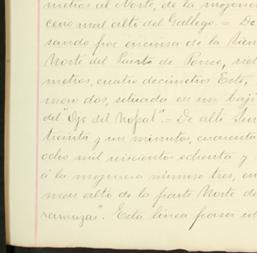 metros al Norte, de la mojonera
cero mas alto del Gallego. = De
sando por encima de la Sierra
Norte del Puerto de
metros, cuatro decímetros Este,
mero dos, situada en un baji
del "Ojo del Nopal" = De allí Sur
treinta y un minutos, cuarenta
ocho mil seiscientos ochenta y
á la mojonera número tres, en
mas alto de la parte Norte de
Esta línea pasa